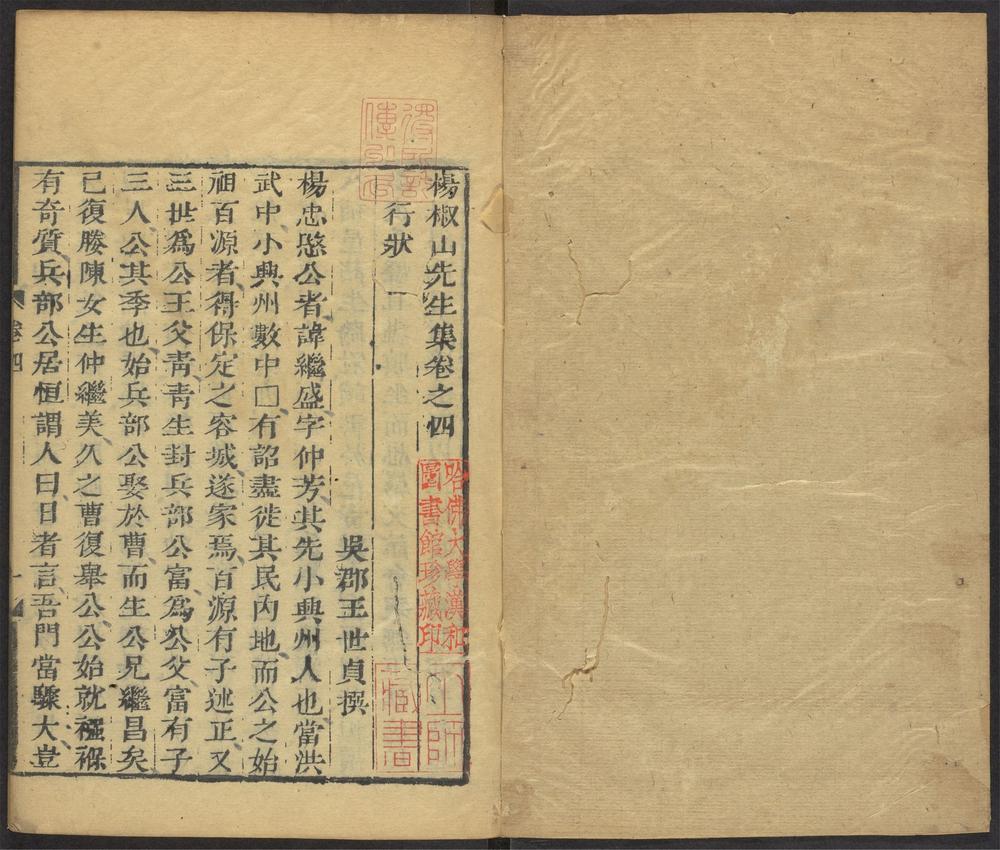 楊椒山先生集卷之四
行狀
吳郡王世貞撰
楊忠愍公者諱繼盛字仲芳其先小興州人也當洪
武中小興州數中囗有詔盡徙其民內地而公之始
祖百源者得保定之容城遂家焉百源有子述正又
三世爲公王父青青生封兵部公富爲公父富有子
三人公其季也始兵部公娶於曹而生公兄繼昌矣
已復媵陳女生仲繼美久之曹復舉公公始就襁褓
有奇質兵部公居恒謂人曰日者言吾門當驟大豈
卷四
一
哈佛大學漢和
圖書館珍藏印
藏書